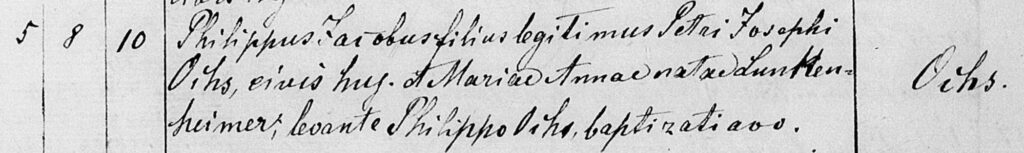 5 8 10 Philippus Jacobus filius legitimus Petri Josephi
Ochs, civis huj. et Mariae Annae natae Lunken=
heimer; levante Philippo Ochs, baptizati avo.
Ochs.